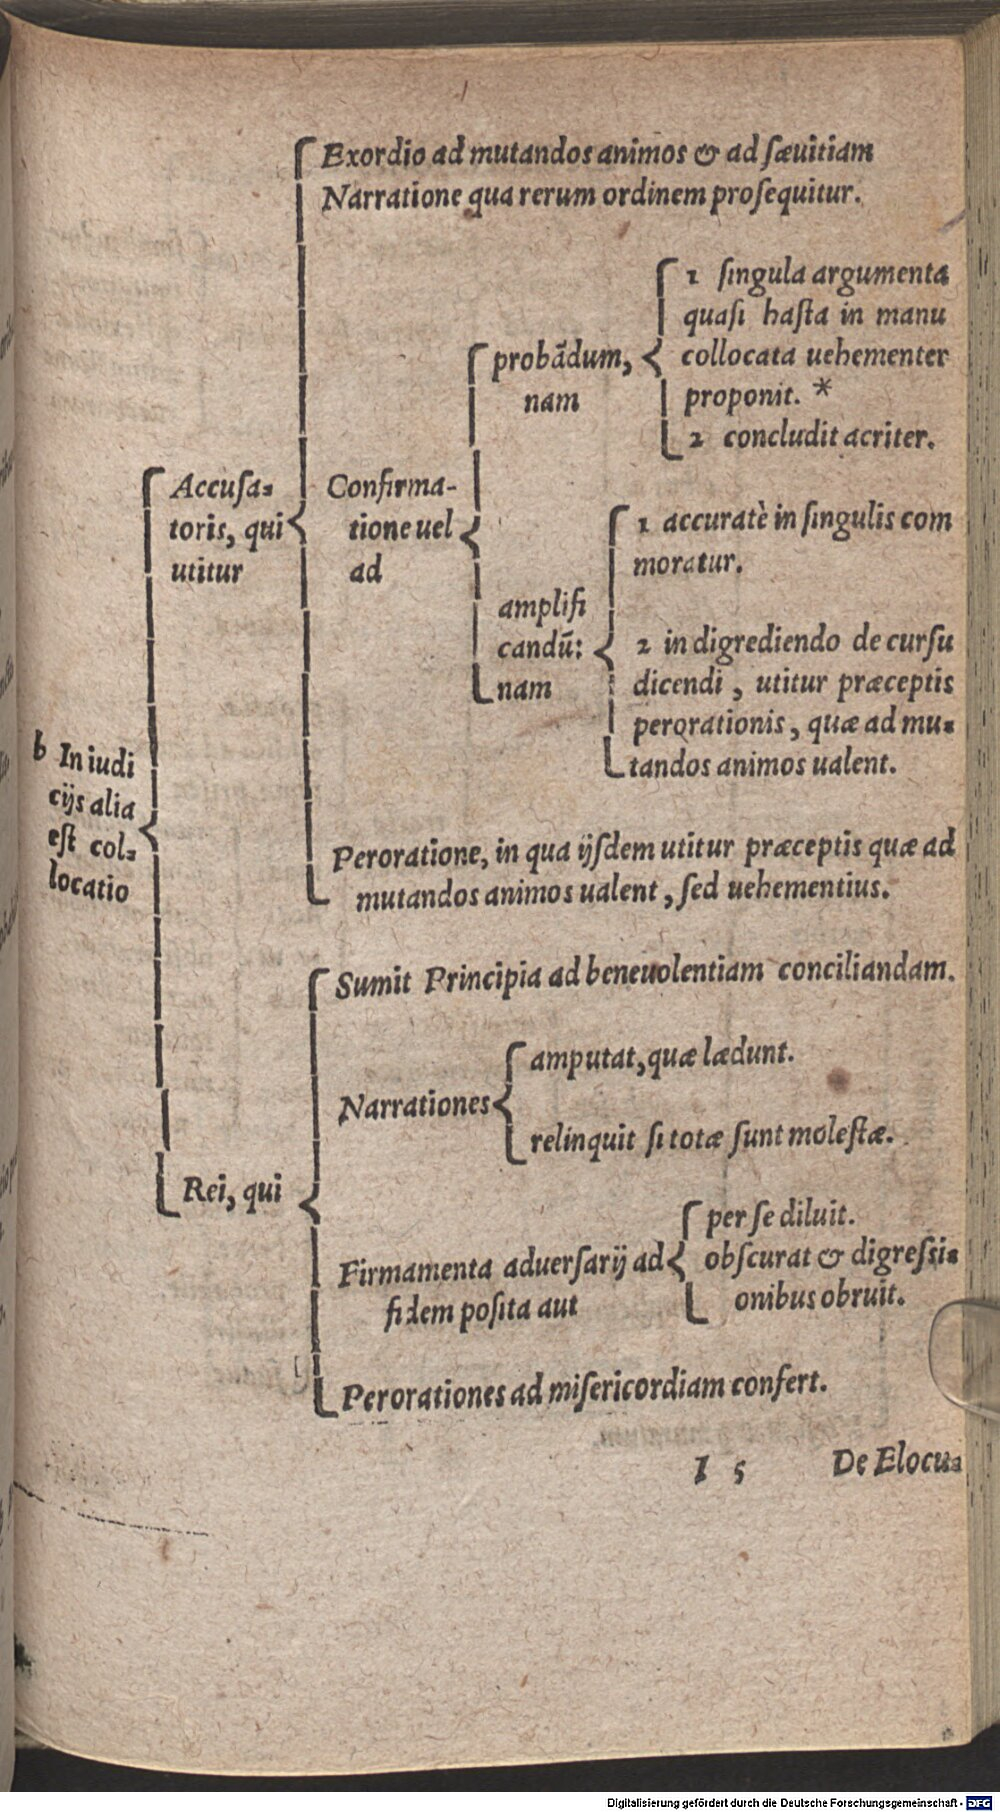 Exordio ad mutandos animos & ad sæuitiam
Narratione qua rerum ordinem prosequitur.
1 singula argumenta
quasi hasta in manu
collocata uehementer
proponit. *
2 concludit acriter.
probādum,
nam
Accusa-
toris, qui
utitur
Confirma-
tione uel
ad
1 accuratè in singulis com
moratur.
amplifi
candū:
nam
2 in digrediendo de cursu
dicendi, utitur præceptis
perorationis, quæ ad mu-
tandos animos ualent.
b In iudi
cijs alia
est col-
locatio
Peroratione, in qua ijsdem utitur præceptis quæ ad
mutandos animos ualent, sed uehementius.
Sumit Principia ad beneuolentiam conciliandam.
Narrationes
amputat, quæ lædunt.
relinquit si totæ sunt molestæ.
Rei, qui
Firmamenta aduersarij ad
fidem posita aut
per se diluit.
obscurat & digressi-
onibus obruit.
Perorationes ad misericordiam confert.
I 5 De Elocu-
Digitalisierung gefördert durch die Deutsche Forschungsgemeinschaft - DFG